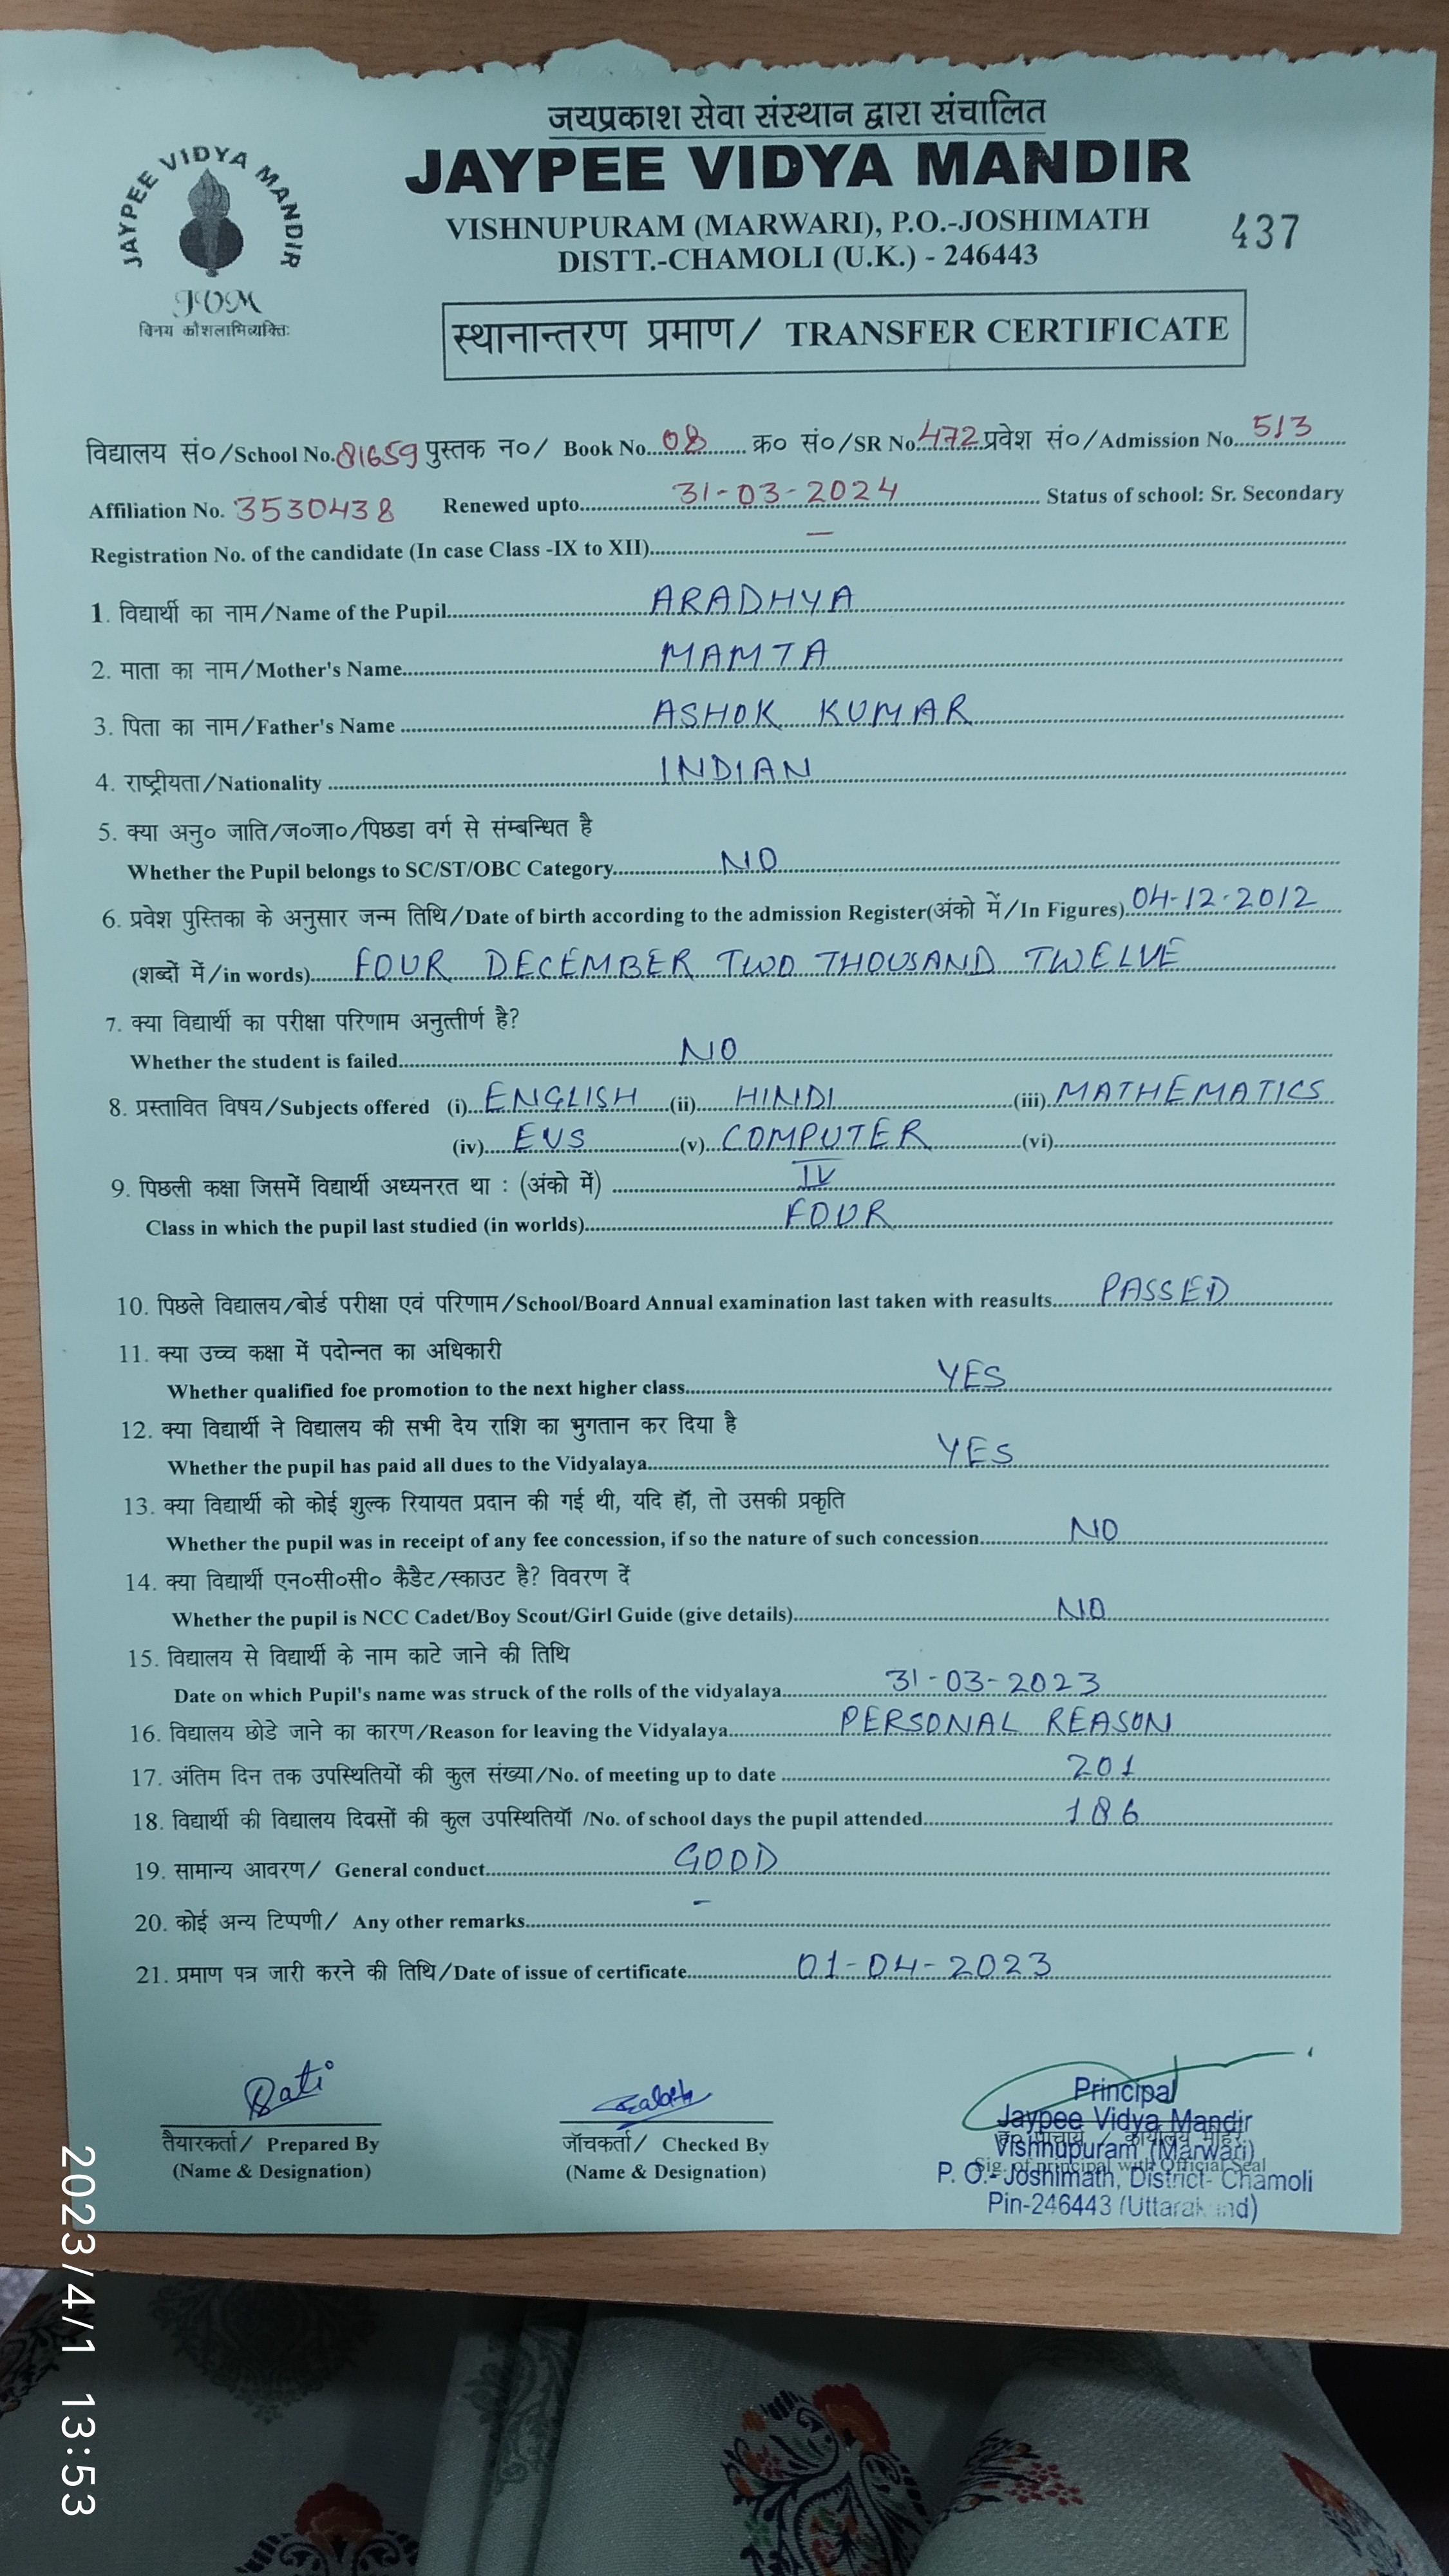 जयप्रकाश सेवा संस्थान द्वारा संचालित
JAYPEE VIDYA MANDIR
JAYPEE VIDYA MANDIR
VISHNUPURAM (MARWARI), P.O.-JOSHIMATH
437
DISTT.-CHAMOLI (U.K.) - 246443
JVM
विनय कौशलाभिव्यक्तिः
स्थानान्तरण प्रमाण/ TRANSFER CERTIFICATE
विद्यालय सं०/School No.81659 पुस्तक न०/ Book No...08... क्र० सं०/SR No.472 प्रवेश सं०/Admission No...513...
Affiliation No. 3530438 Renewed upto...31-03-2024... Status of school: Sr. Secondary
Registration No. of the candidate (In case Class -IX to XII)...—...
1. विद्यार्थी का नाम/Name of the Pupil...ARADHYA...
2. माता का नाम/Mother's Name...MAMTA...
3. पिता का नाम/Father's Name ...ASHOK KUMAR...
4. राष्ट्रीयता/Nationality ...INDIAN...
5. क्या अनु० जाति/ज०जा०/पिछडा वर्ग से संम्बन्धित है
Whether the Pupil belongs to SC/ST/OBC Category...NO...
6. प्रवेश पुस्तिका के अनुसार जन्म तिथि/Date of birth according to the admission Register(अंको में/In Figures)..04-12-2012
(शब्दों में/in words)...FOUR DECEMBER TWO THOUSAND TWELVE...
7. क्या विद्यार्थी का परीक्षा परिणाम अनुत्तीर्ण है?
Whether the student is failed...NO...
8. प्रस्तावित विषय/Subjects offered (i)...ENGLISH...(ii)...HINDI...(iii) MATHEMATICS
(iv)...EVS...(v)...COMPUTER...(vi)...
9. पिछली कक्षा जिसमें विद्यार्थी अध्यनरत था : (अंको में) ...IV...
Class in which the pupil last studied (in worlds)...FOUR...
10. पिछले विद्यालय/बोर्ड परीक्षा एवं परिणाम/School/Board Annual examination last taken with reasults...PASSED...
11. क्या उच्च कक्षा में पदोन्नत का अधिकारी
Whether qualified foe promotion to the next higher class...YES...
12. क्या विद्यार्थी ने विद्यालय की सभी देय राशि का भुगतान कर दिया है
Whether the pupil has paid all dues to the Vidyalaya...YES...
13. क्या विद्यार्थी को कोई शुल्क रियायत प्रदान की गई थी, यदि हॉ, तो उसकी प्रकृति
Whether the pupil was in receipt of any fee concession, if so the nature of such concession...NO...
14. क्या विद्यार्थी एन०सी०सी० कैडैट/स्काउट है? विवरण दें
Whether the pupil is NCC Cadet/Boy Scout/Girl Guide (give details)...NO...
15. विद्यालय से विद्यार्थी के नाम काटे जाने की तिथि
Date on which Pupil's name was struck of the rolls of the vidyalaya...31-03-2023...
16. विद्यालय छोडे जाने का कारण/Reason for leaving the Vidyalaya...PERSONAL REASON...
17. अंतिम दिन तक उपस्थितियों की कुल संख्या/No. of meeting up to date ...201...
18. विद्यार्थी की विद्यालय दिवसों की कुल उपस्थितियॉ /No. of school days the pupil attended...186...
19. सामान्य आवरण/ General conduct...GOOD...
20. कोई अन्य टिप्पणी/ Any other remarks...-...
21. प्रमाण पत्र जारी करने की तिथि/Date of issue of certificate...01-04-2023...
तैयारकर्ता/ Prepared By
(Name & Designation)
जॉचकर्ता/ Checked By
(Name & Designation)
Principal
Jaypee Vidya Mandir
Vishnupuram (Marwari)
Sig. of principal with Official Seal
P. O.- Joshimath, District- Chamoli
Pin-246443 (Uttarakhand)
2023/4/1 13:53